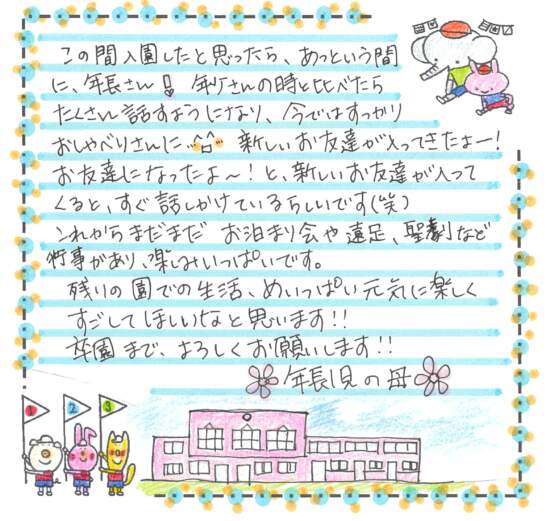 この間入園したと思ったら、あっという間
に、年長さん！年少さんの時と比べたら
たくさん話すようになり、今ではすっかり
おしゃべりさんに 新しいお友達が入ってきたよー！
お友達になったよ～！と、新しいお友達が入って
くると、すぐ話しかけているらしいです(笑)
これからまだまだ お泊まり会や遠足、聖劇など
行事があり、楽しみいっぱいです。
残りの園での生活、めいっぱい元気に楽しく
すごしてほしいなと思います!!
卒園まで、よろしくお願いします!!
年長児の母
1 2 3